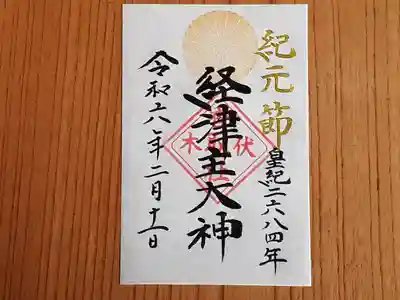 紀元節
皇紀二六八四年
経津主大神
令和六年二月十一日